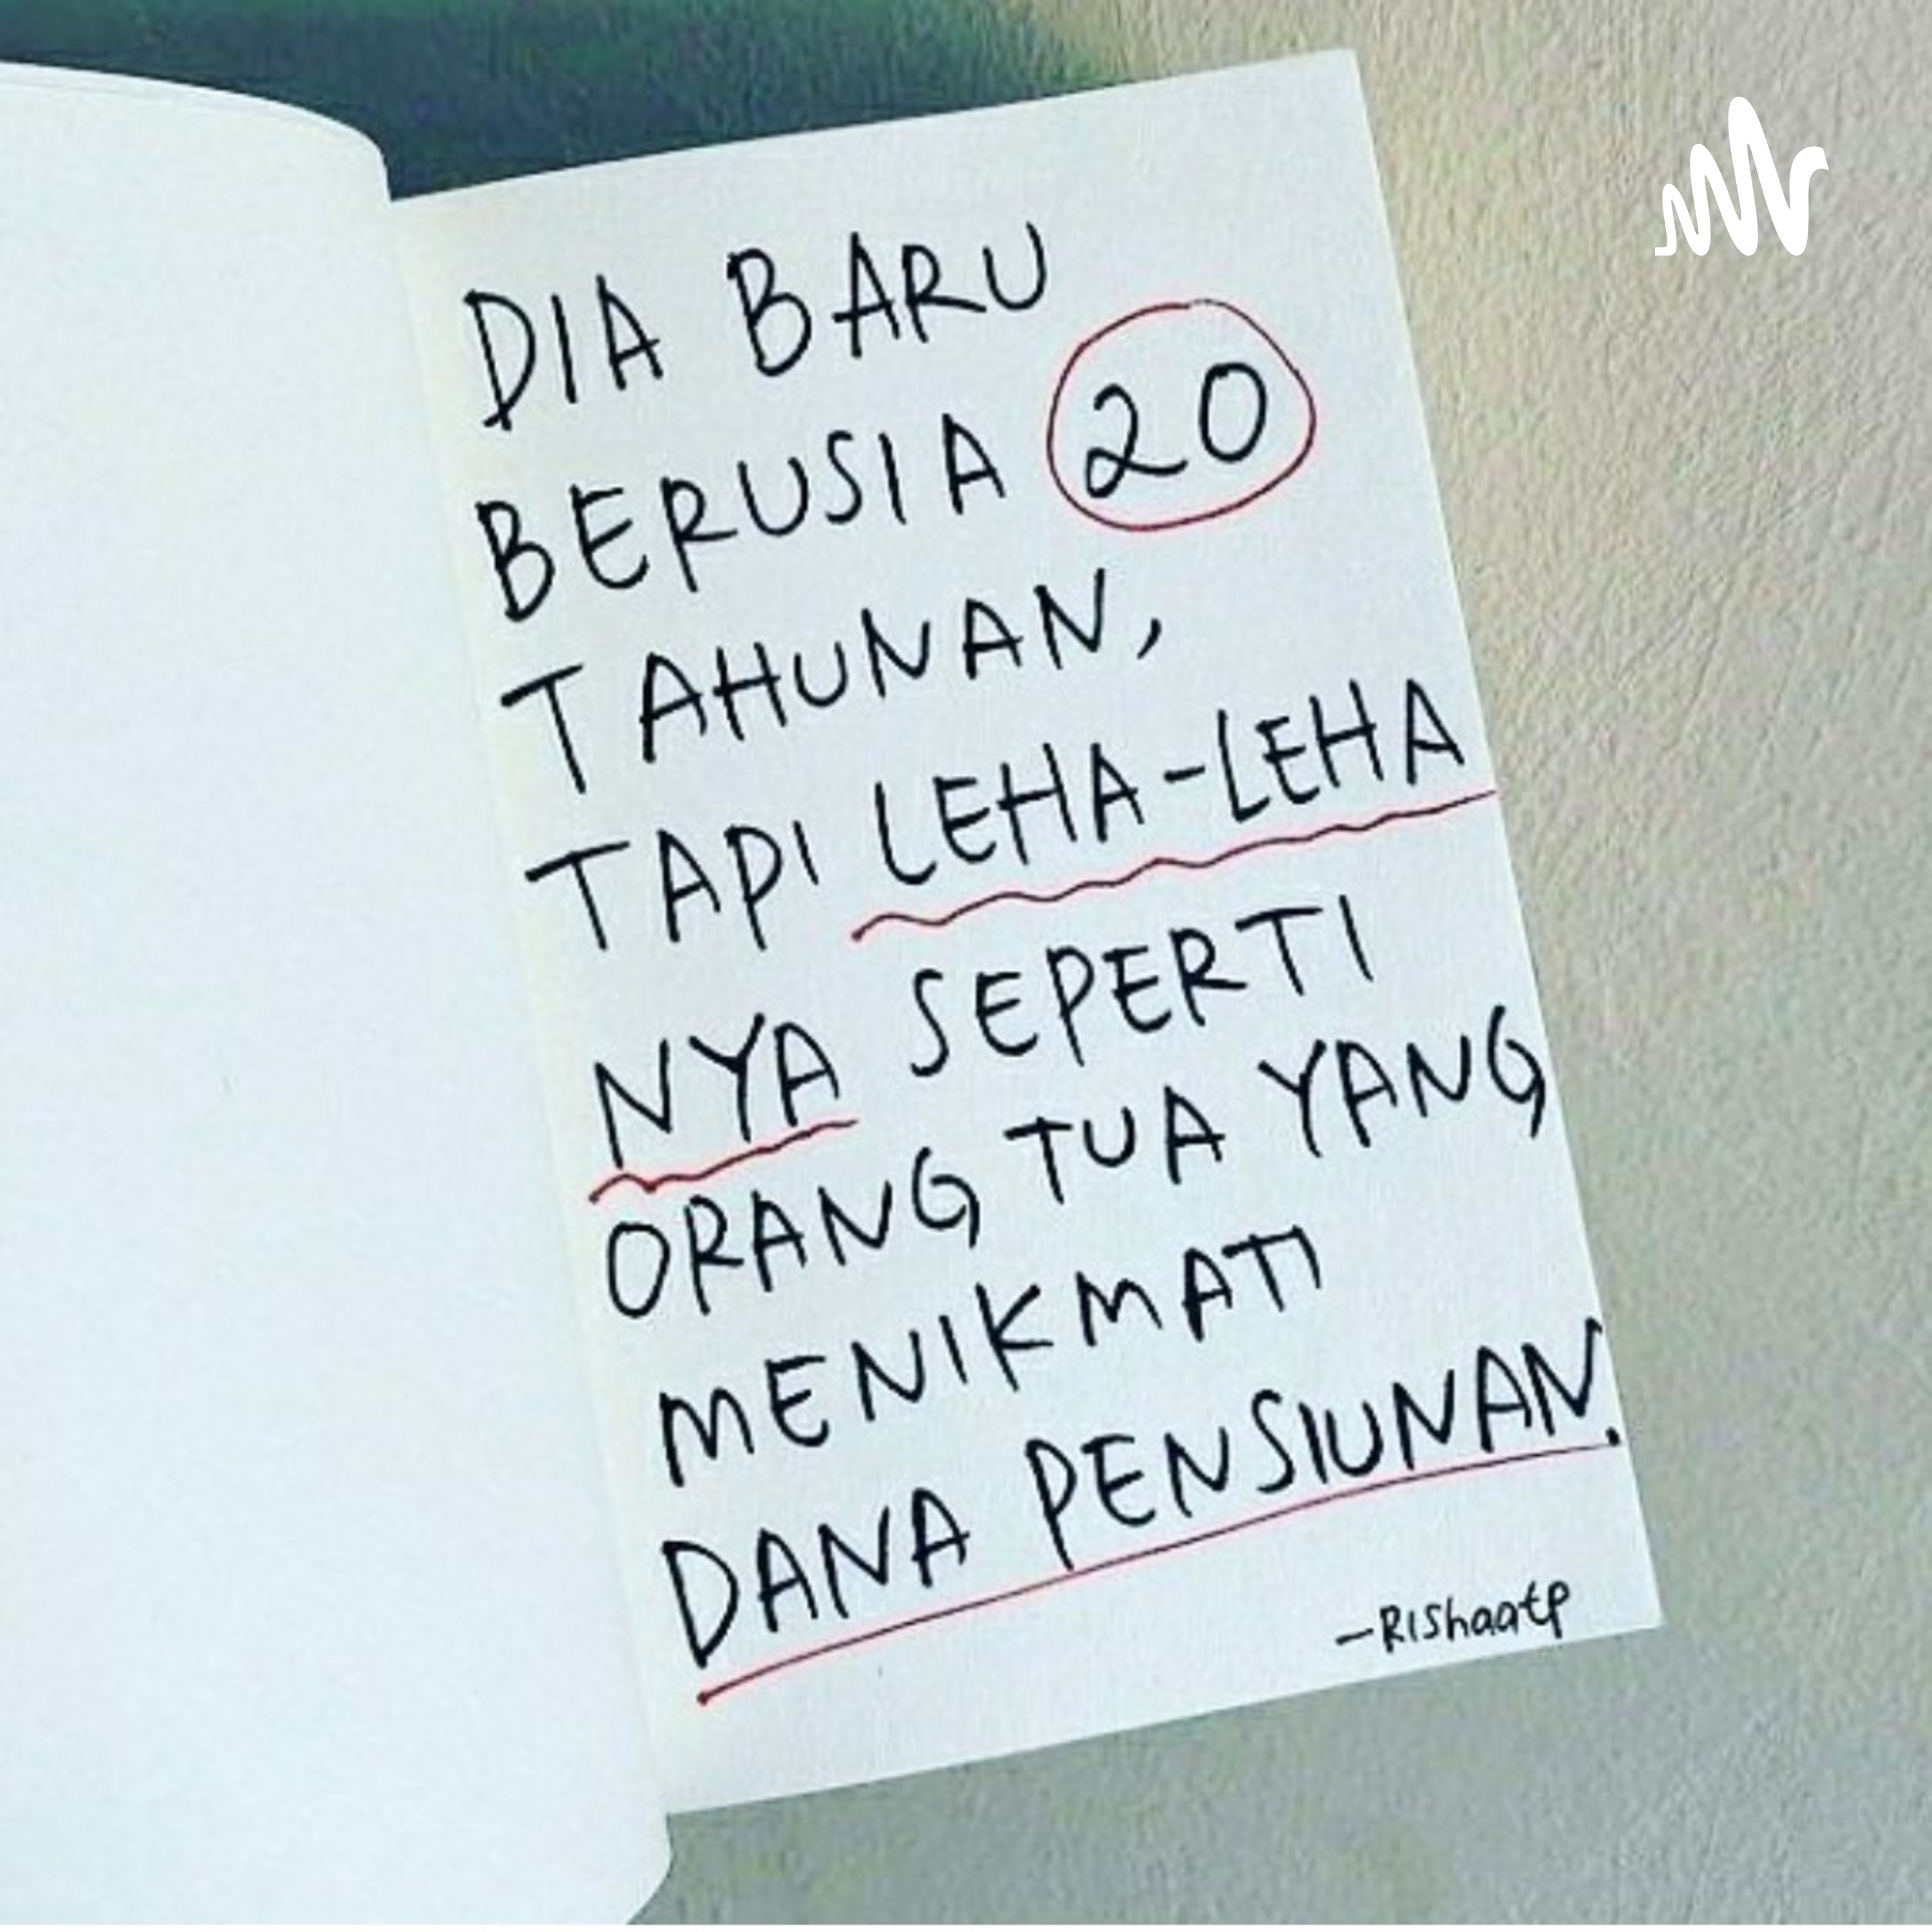 DIA BARU
BERUSIA 20
TAHUNAN,
TAPI LEHA-LEHA
NYA SEPERTI
ORANG TUA YANG
MENIKMATI
DANA PENSIUNAN.
-RIShaatp